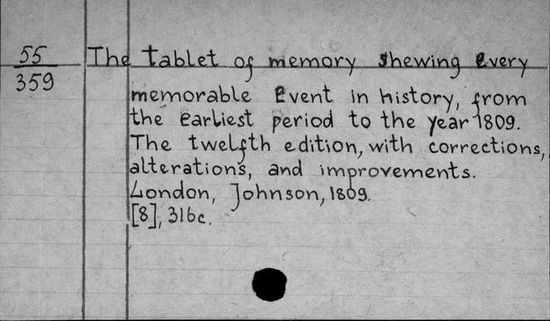 55
359
The tablet of memory shewing every
memorable Event in history, from
the earliest period to the year 1809.
The twelfth edition, with corrections,
alterations, and improvements.
London, Johnson, 1809.
[8], 316c.